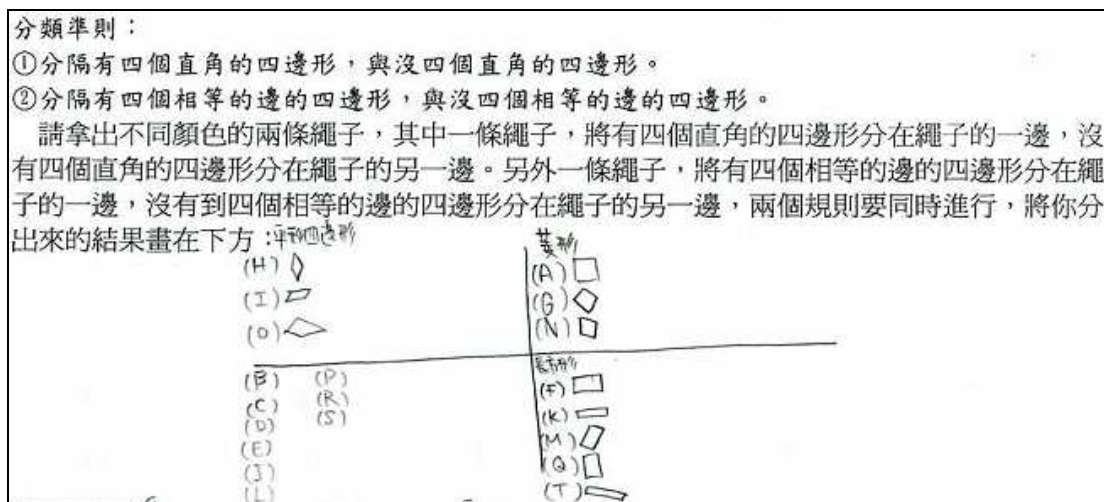 分類準則：
①分隔有四個直角的四邊形，與沒四個直角的四邊形。
②分隔有四個相等的邊的四邊形，與沒四個相等的邊的四邊形。
請拿出不同顏色的兩條繩子，其中一條繩子，將有四個直角的四邊形分在繩子的一邊，沒
有四個直角的四邊形分在繩子的另一邊。另外一條繩子，將有四個相等的邊的四邊形分在繩
子的一邊，沒有到四個相等的邊的四邊形分在繩子的另一邊，兩個規則要同時進行，將你分
出來的結果畫在下方：
平行四邊形
(H)
(I)
(O)
菱形
(A)
(G)
(N)
(B) (P)
(C) (R)
(D) (S)
(E)
(J)
(L)
長方形
(F)
(K)
(M)
(Q)
(T)